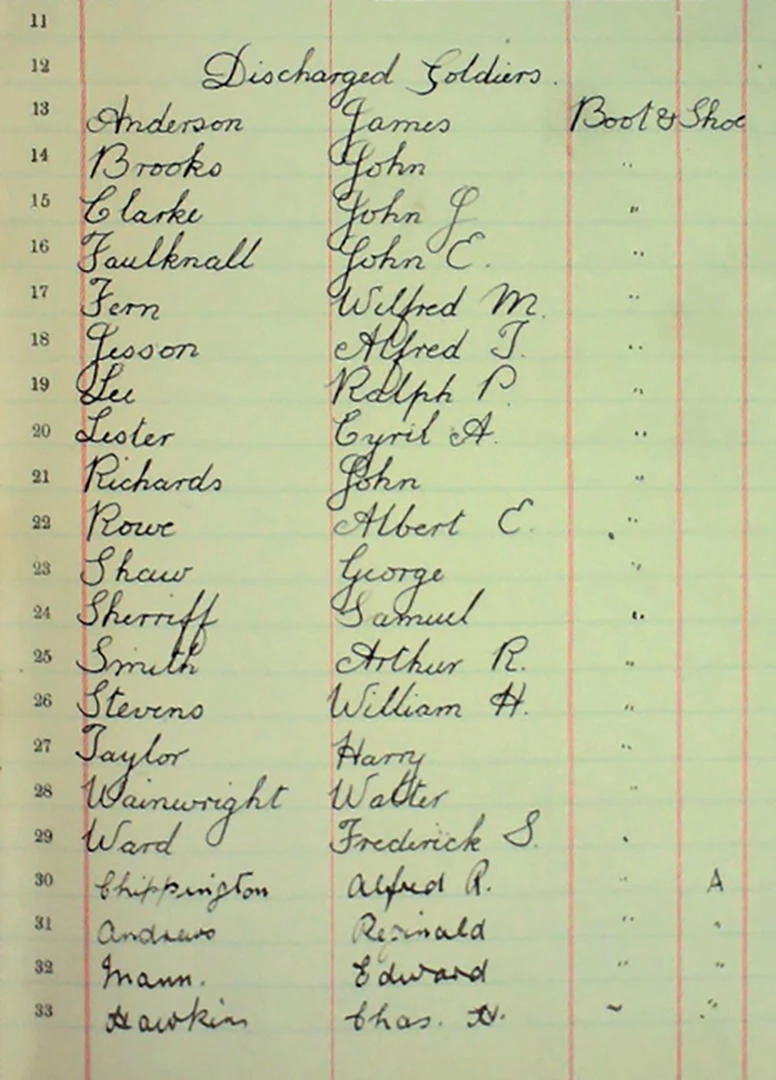 11
12 Discharged Soldiers.
13 Anderson James Boot & Shoe
14 Brooks John "
15 Clarke John J "
16 Faulknall John E. "
17 Fern Wilfred M. "
18 Jesson Alfred T. "
19 Lee Ralph P. "
20 Lester Cyril A. "
21 Richards John "
22 Rowe Albert E. "
23 Shaw George "
24 Sherriff Samuel "
25 Smith Arthur R. "
26 Stevens William H. "
27 Taylor Harry "
28 Wainwright Walter "
29 Ward Frederick S. "
30 Chippington Alfred R. " A
31 Andrews Reginald " "
32 Mann. Edward " "
33 Hawkins Chas. H. " "